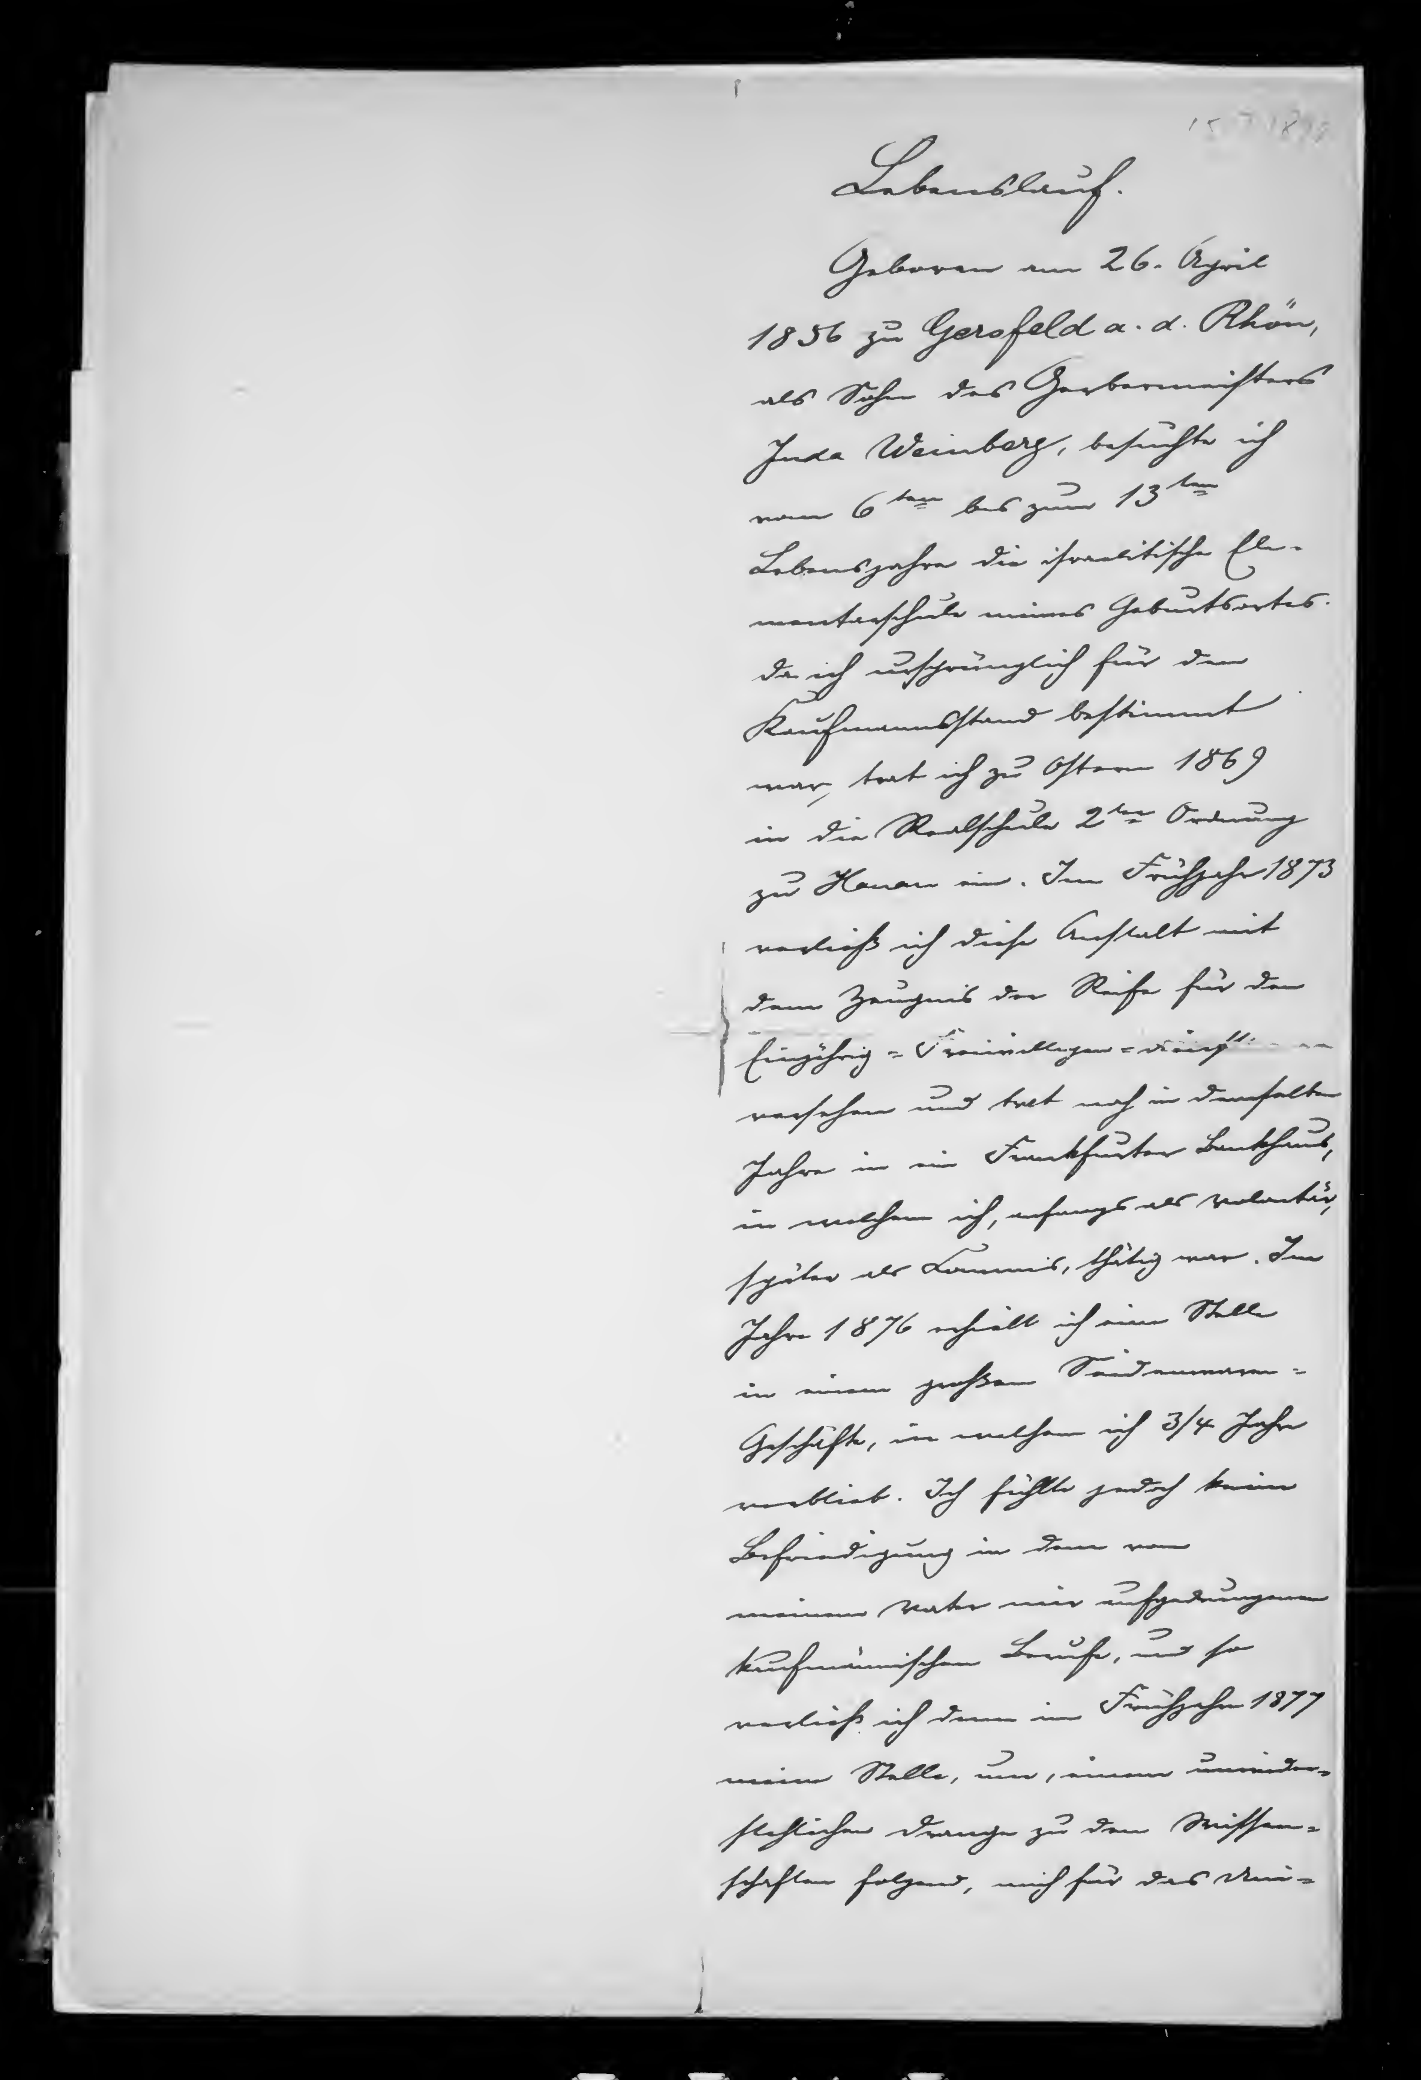 Lebenslauf.
Geboren am 26. April
1856 zu Gersfeld a. d. Rhön,
als Sohn des Gerbermeisters
Juda Weinberg, besuchte ich
vom 6ten bis zum 13ten
Lebensjahre die israelitische Ele-
mentarschule meines Geburtsortes.
Da ich ursprünglich für den
Kaufmannsstand bestimmt
war, trat ich zu Ostern 1869
in die Realschule 2ter Ordnung
zu Hanau ein. Im Frühjahr 1873
verließ ich diese Anstalt mit
dem Zeugnis der Reife für den
Einjährig-Freiwilligen-Dienst
versehen und trat noch in demselben
Jahre in ein Frankfurter Bankhaus,
in welchem ich, anfangs als Volontär,
später als Commis, thätig war. Im
Jahre 1876 erhielt ich eine Stelle
in einem großen Seidenwaren-
Geschäfte, in welchem ich 3/4 Jahre
verblieb. Ich fühlte jedoch keine
Befriedigung in dem von
meinem Vater mir aufgedrungenen
kaufmännischen Berufe, und so
verließ ich denn im Frühjahr 1877
meine Stelle, um, einem unwider-
stehlichen Drange zu den Wissen-
schaften folgend, mich für das Uni-